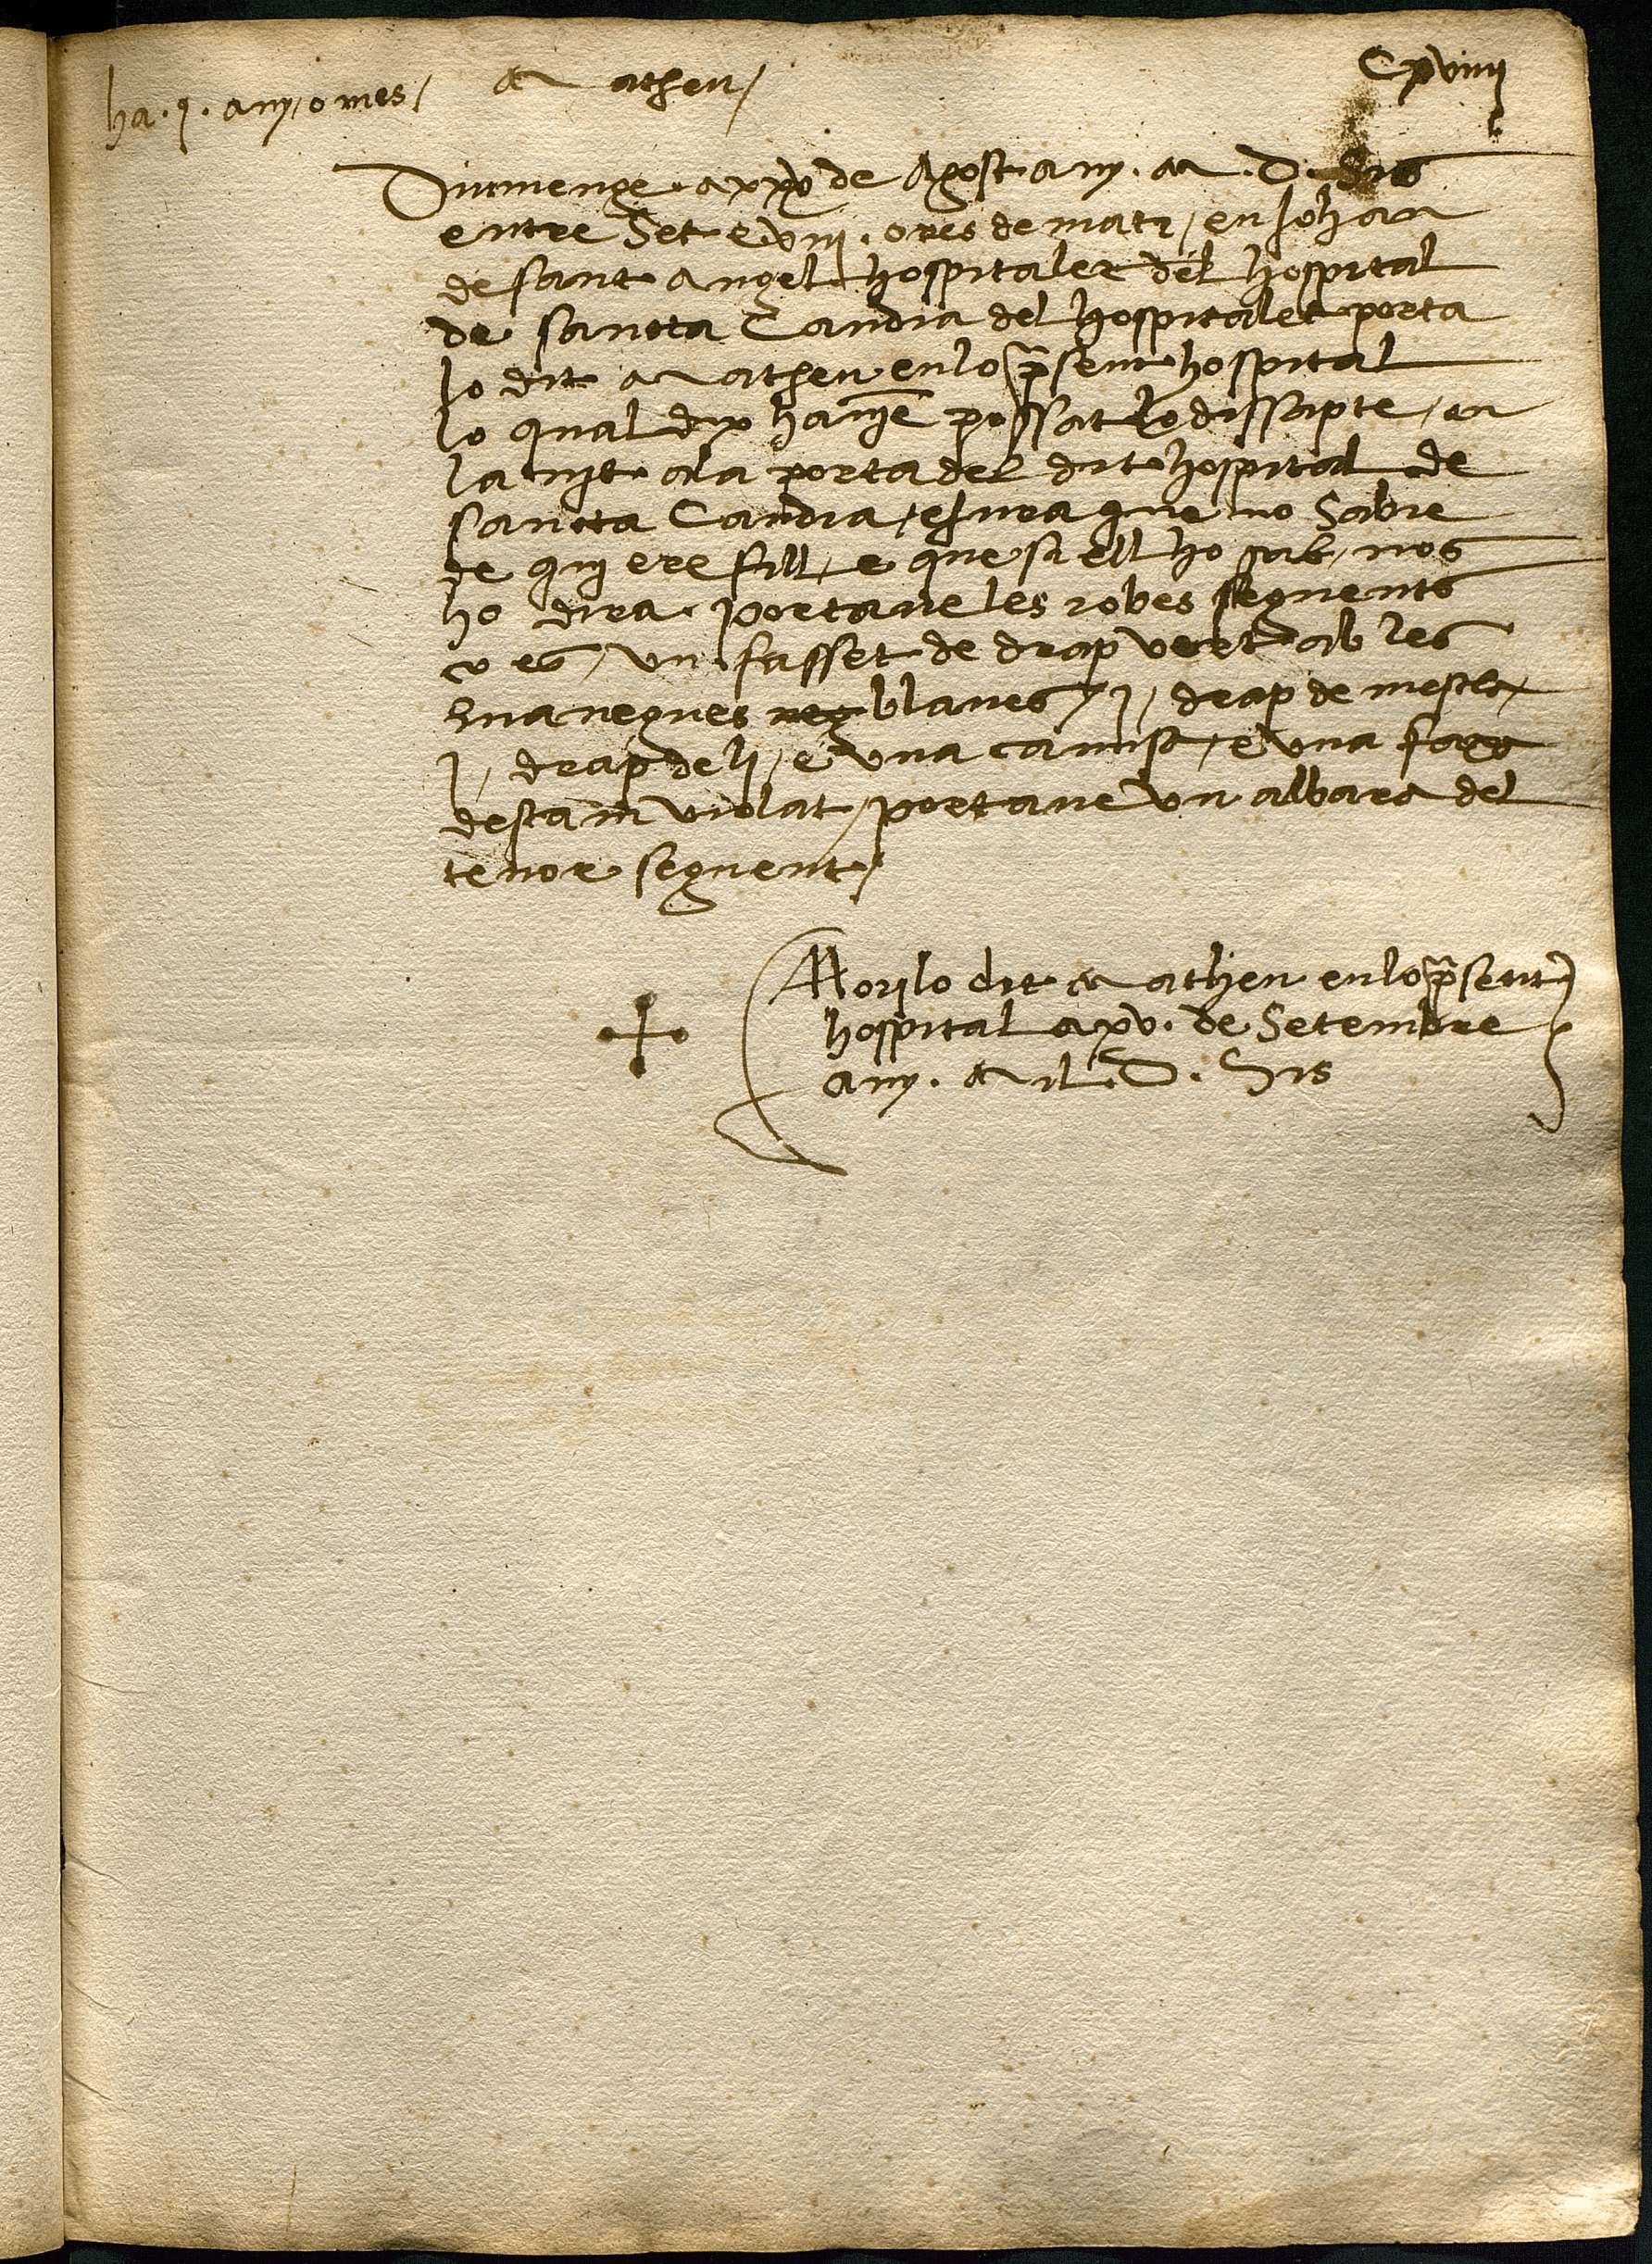 ha .j. any o mes /
Matheu /
Cxviiii
Diumenge a xxx de Agost any . M . D . Sis
entre Set e viii . ores de mati / en Johan
de sant angel hospitaler del hospital
de sancta Candia del hospitalet porta
lo dit Matheu en lo p̃sent hospital
lo qual dix havie possat lo dissapte / en
la nit a la porta del dit hospital de
sancta Candia / e que no Sabie
de qui ere fill / e que si ell ho sab / nos
ho dira . portave les robes seguents
ço es / un fasset de drap vert ab les
manegues neg blaves / j / drap de mescla /
j / drap de li / e una camisa / e una faxa
destam violat / portave un albara del
tenor seguent /
Mori lo dit Matheu en lo p̃sent
hospital a xv . de Setembre
any . Mil . D . Sis